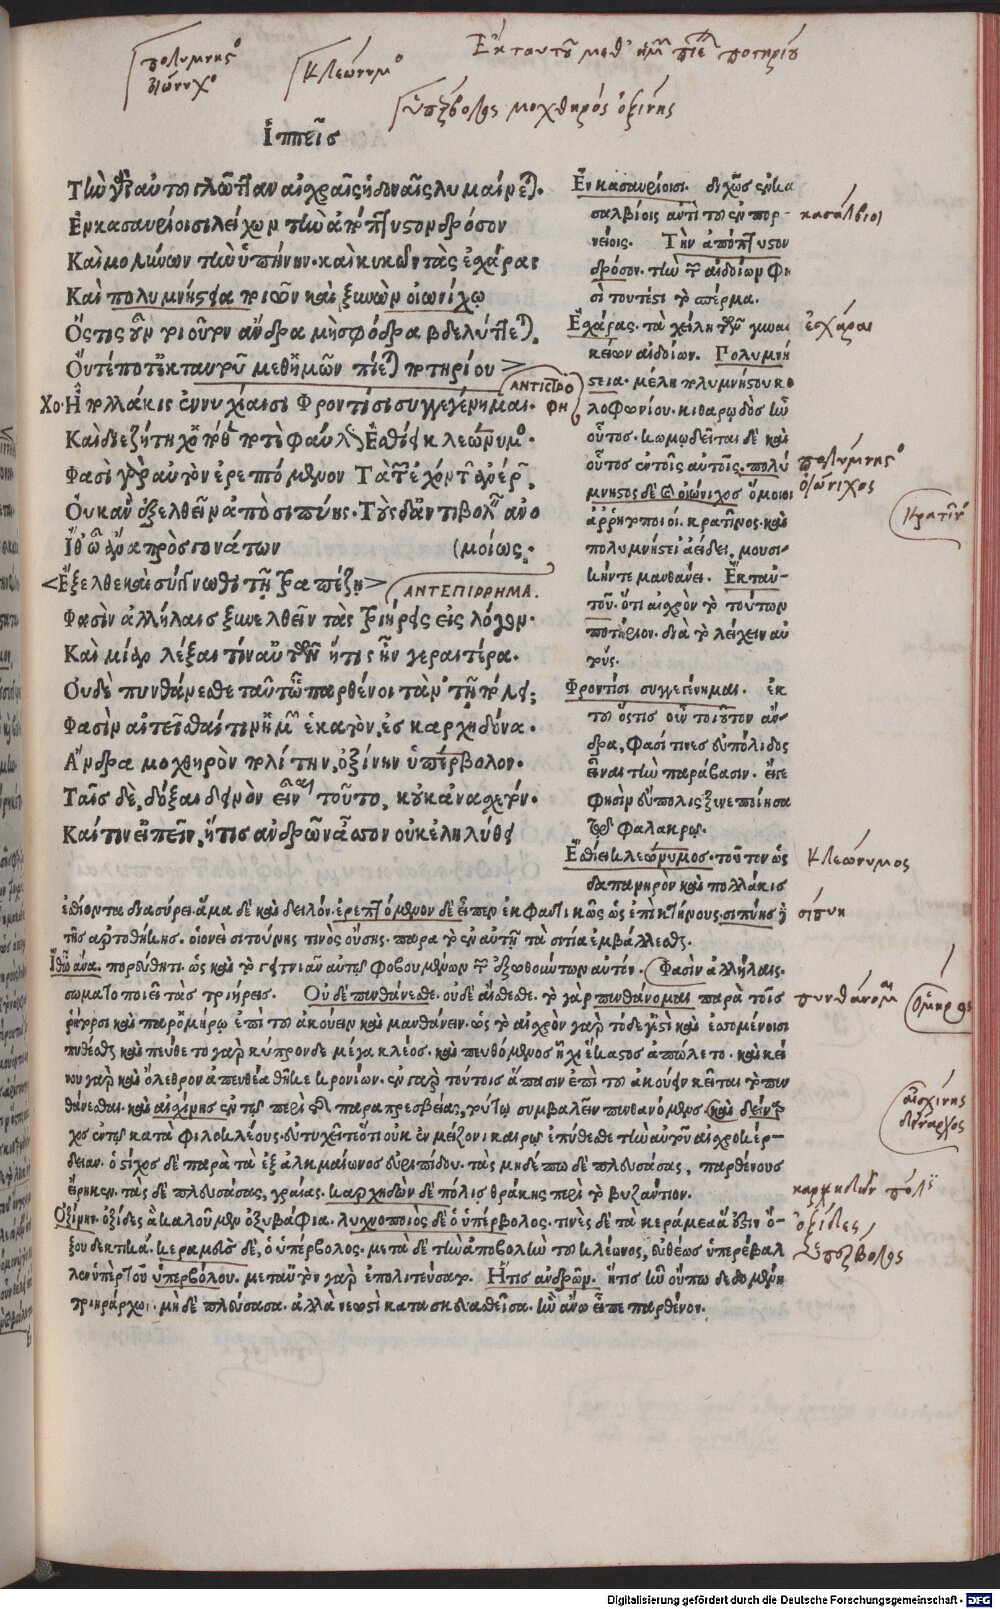 πολυμνης
οἰώνιχο
Κλεώνυμο
Ἐκ ταυτοῦ μεθ' ἡμῶν πίε ποτηρίου
ὑπέρβολος μοχθηρός ὀξίνης
Ἱππεῖς
Τὴν γὰρ αὑτοῦ γλῶτταν αἰσχραῖς ἡδοναῖς λυμαίνεται.
Ἐν κασαυρίοισι λείχων τὴν ἀπόπτυστον δρόσον
Καὶ μολύνων τὴν ὑπήνην. καὶ κυκῶν τὰς ἐσχάρας
Καὶ πολυμνήστεια ποιῶν καὶ ξυνὼν οἰωνίχῳ
Ὅστις οὖν τοιοῦτον ἄνδρα μὴ σφόδρα βδελύττεται.
Οὔτέποτ' ἐκ ταυτοῦ μεθ' ἡμῶν πίεται ποτηρίου
ΑΝΤΙΣΤΡΟ
ΦΗ
Χο. Ἦ πολλάκις ἐννυχίαισι Φροντίσι συγγεγένημαι.
Καὶ διεζήτηχ' ὁπόθεν ποτὲ φαύλως Ἐσθίει κλεώνυμος.
Φασὶ γὰρ αὐτὸν ἐρεπτόμενον Τὰ τῶν ἐχόντων ἀνέρων
Οὐκ ἂν ἐξελθεῖν ἀπὸ σιπύης. Τοὺς δ' ἀντιβολεῖν ἂν ὁ
Ἴθ' ὦ ἄνα πρὸς γονάτων (μοίως.
Ἔξελθε καὶ σύγγνωθι τῇ τραπέζῃ
ΑΝΤΕΠΙΡΡΗΜΑ.
Φασὶν ἀλλήλαις ξυνελθεῖν τὰς τριήρεις εἰς λόγον.
Καὶ μίαν λέξαι τιν' αὐτῶν ἥτις ἦν γεραιτέρα.
Οὐδὲ πυνθάνεσθε ταῦτ' ὦ παρθένοι τἀν τῇ πόλει;
Φασὶν αἰτεῖσθαί τιν' ἡμῶν ἑκατὸν ἐς καρχηδόνα.
Ἄνδρα μοχθηρὸν πολίτην, ὀξίνην ὑπέρβολον.
Ταῖς δὲ, δόξαι δεινὸν εἶναι τοῦτο, κοὐκ ἀνασχετόν.
Καί τιν' εἰπεῖν, ἥτις ἀνδρῶν ἆσσον οὐκ ἐληλύθει
Ἐν κασαυρίοισι. διχῶς ἐν κα
σαλβίοις ἀντὶ τοῦ ἐν πορ-
νείοις. Τὴν ἀπόπτυστον
δρόσον. τὴν τῶν αἰδοίων φη
σὶ τουτέστι τὸ σπέρμα.
Ἐσχάρας. τὰ χείλη τῶν γυναι
κείων αἰδοίων. Πολυμνή
στεια. μέλη πολυμνήστου κο
λοφωνίου. κιθαρῳδὸς ἦν
οὗτος. κωμῳδεῖται δὲ καὶ
οὗτος ἐν τοῖς αὐτοῖς. πολύ
μνηστος δὲ καὶ οἰώνιχος ὅμοιοι
ἀρρητοποιοί. κρατῖνος. καὶ
πολυμνήστει' ἀείδει, μουσι-
κήν τε μανθάνει. Ἐκ ταὐ-
τοῦ. ὅτι αἰσχρὸν τὸ τούτων
ποτήριον. διὰ τὸ λείχειν αὐ
τούς.
Φροντίσι συγγεγένημαι. ἐκ
τοῦ ὅστις οὖν τοιοῦτον ἄν-
δρα, φασί τινες εὐπόλιδος
εἶναι τὴν παράβασιν. εἴγε
φησὶν εὔπολις ξυνεποίησα
τῷ φαλακρῷ.
Ἐσθίει κλεώνυμος. τοῦτον ὡς
δαπανηρὸν καὶ πολλάκις
ἐσθίοντα διασύρει. ἅμα δὲ καὶ δειλόν. ἐρεπτόμενον δὲ εἶπεν ἐκ φατικῶς ὡς ἐπὶ κτήνους. σιπύης
τῆς ἀρτοθήκης. οἱονεὶ σιτούνης τινὸς οὔσης. παρὰ τὸ ἐν αὐτῇ τὰ σιτία ἐμβάλλεσθαι.
Ἴθ' ὦ ἄνα. πορεύθητι. ὡς καὶ τῶν γειτνιῶν αὐτοῖς φοβουμένων τῶν ἐξωθούντων αὐτόν. Φασὶν ἀλλήλαις.
σωματοποιεῖ τὰς τριήρεις. Οὐδὲ πυνθάνεσθε. οὐδὲ αἴσθεσθε. τὸ γὰρ πυνθάνομαι παρὰ τοῖς
ῥήτορσι καὶ παρ' ὁμήρῳ ἐπὶ τοῦ ἀκούειν καὶ μανθάνειν. ὡς τὸ αἰσχρὸν γὰρ τόδε γ' ἐστὶ καὶ ἐσομένοισι
πυθέσθαι καὶ πεύθετο γὰρ κύπρονδε μέγα κλέος. καὶ πευθόμενος ἧχι ἕκαστος ἀπώλετο. καὶ κεί
νου γὰρ καὶ ὄλεθρον ἀπευθέα θῆκε κρονίων. ἐν γὰρ τούτοις ἅπασιν ἐπὶ τοῦ ἀκούειν κεῖται τὸ πυν
θάνεσθαι. καὶ αἰσχίνης ἐν τῷ περὶ τῆς παραπρεσβείας, τούτῳ συμβαλεῖν πυνθανόμενος καὶ δείναρ
χος ἐν τῷ κατὰ φιλοκλέους. εὐτυχεῖτε ὅτι οὐκ ἐν μείζονι καιρῷ ἐπύθεσθε τὴν αὐτοῦ αἰσχροκέρ-
δειαν. ὁ στίχος δὲ παρὰ τὰ ἐξ ἀλκμαίωνος εὐριπίδου. τὰς μηδέπω δὲ πλευσάσας, παρθένους
εἴρηκεν. τὰς δὲ πλευσάσας, γραίας. καρχηδὼν δὲ πόλις θράκης περὶ τὸ βυζάντιον.
Ὀξίνην. ὀξίδες ἃ καλοῦμεν ὀξυβάφια. λυχνοποιὸς δὲ ὁ ὑπέρβολος. τινὲς δὲ τὰ κεράμεα ἄγγη ὄ-
ξου δεκτικά. κεραμεὺς δὲ, ὁ ὑπέρβολος. μετὰ δὲ τὴν ἀποβολὴν τοῦ κλέωνος, εὐθέως ὑπερέβαλ
λεν ὑπὲρ τοῦ ὑπερβόλου. μετ' αὐτὸν γὰρ ἐπολιτεύσατο. Ἥτις ἀνδρῶν. ἥτις ἦν οὔπω δεδομένη
τριηράρχῳ. μὴ δὲ πλεύσασα. ἀλλὰ νεωστὶ κατασκευασθεῖσα. ἣν ἄνω εἶπε παρθένον.
κασάλβιοι
ἐσχάραι
πολύμνηστος
οἰώνιχος
Κρατῖνος
Κλεώνυμος
σίπυη
πυνθάνομαι
Ὅμηρος
αἰσχίνης
δείναρχος
καρχηδὼν πόλις
ὀξίδες
Ὑπέρβολος
Digitalisierung gefördert durch die Deutsche Forschungsgemeinschaft - DFG